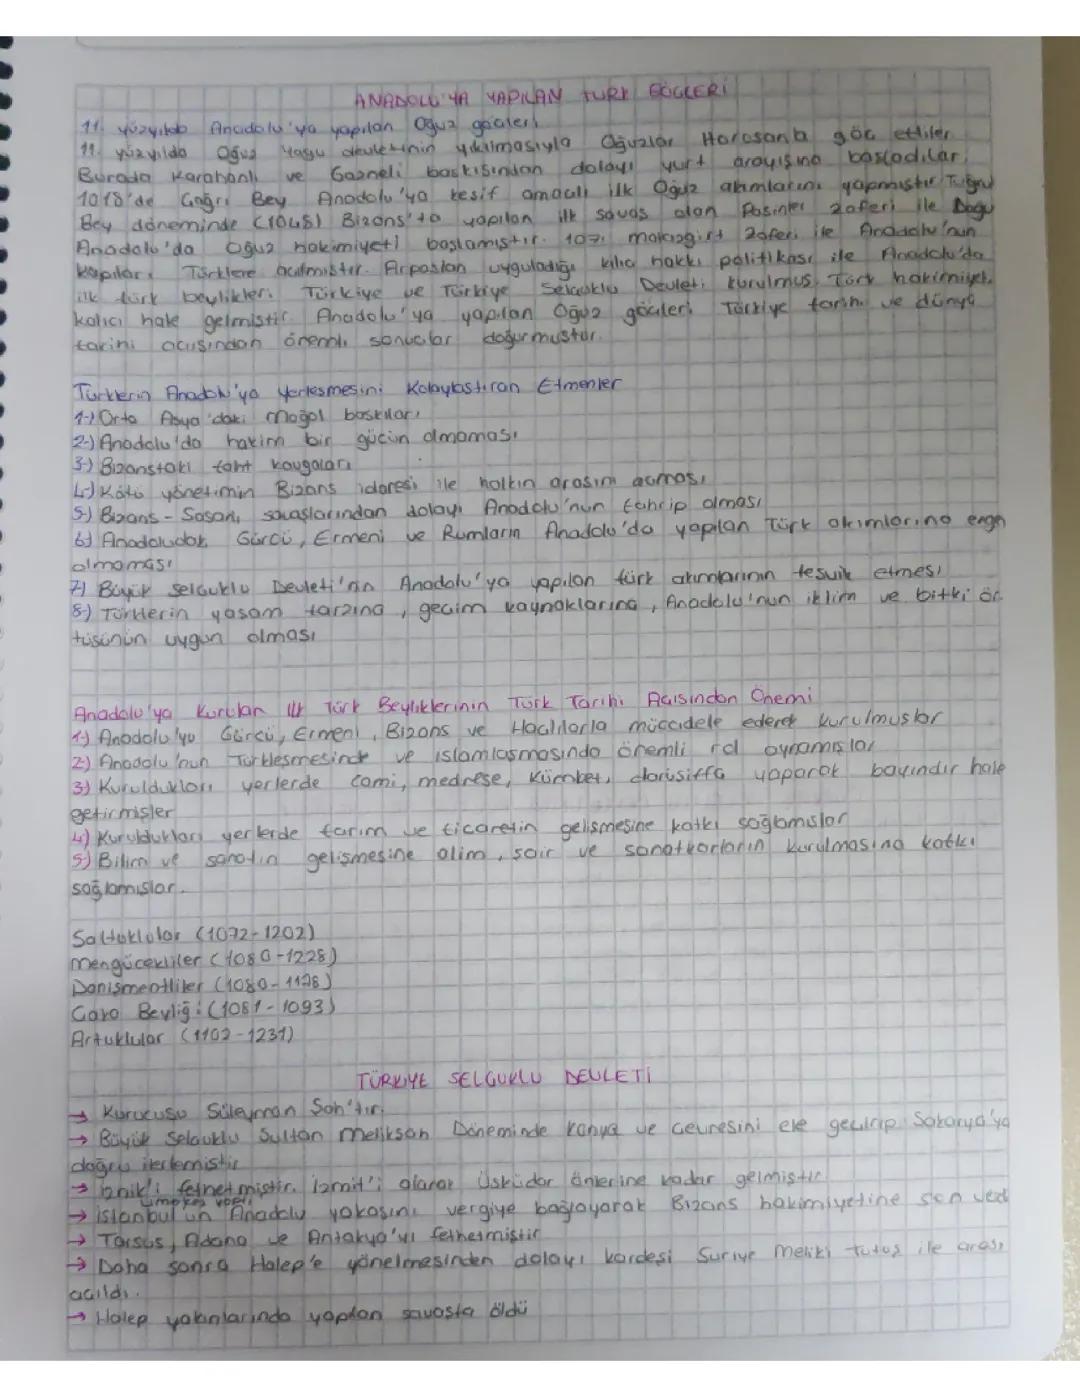 ANADOLU'YA YAPILAN TÜRK GÖÇLERİ
11. yüzyılda Anadolu'ya yapılan Oğuz göçleri
11. yüzyılda Oğuz Yabgu devletinin yıkılmasıyla Oğuzlar Horasan'a göç ettiler
Burada Karahanlı ve Gazneli baskısından dolayı yurt arayışına başladılar.
1018'de Çağrı Bey Anadolu'ya keşif amaçlı ilk Oğuz akınlarını yapmıştır. Tuğrul
Bey döneminde (1048) Bizans'ta yapılan ilk savaş olan Pasinler zaferi ile Doğu
Anadolu'da Oğuz hakimiyeti başlamıştır. 1071 malazgirt zaferi ile Anadolu'nun
kapıları Türklere açılmıştır. Arpaslan uyguladığı kılıç hakkı politikası ile Anadolu'da
ilk türk beylikleri Türkiye ve Türkiye Selçuklu Devleti kurulmuş Türk hakimiyeti
kalıcı hale gelmiştir. Anadolu'ya yapılan Oğuz göçleri Türkiye tarihi ve dünya
tarihi açısından önemli sonuçlar doğurmuştur.
Türklerin Anadolu'ya Yerleşmesini Kolaylaştıran Etmenler
1-) Orta Asya'daki moğol baskıları
2-) Anadolu'da hakim bir gücün olmaması
3-) Bizanstaki taht kavgaları
4-) Kötü yönetimin Bizans idaresi ile halkın arasını açması
5-) Bizans - Sasani savaşlarından dolayı Anadolu'nun tahrip olması
6-) Anadoludak Gürcü, Ermeni ve Rumların Anadolu'da yapılan Türk akımlarına engel
olmaması
7-) Büyük Selçuklu Devleti'nin Anadolu'ya yapılan türk akınlarının teşvik etmesi
8-) Türklerin yaşam tarzına, geçim kaynaklarına, Anadolu'nun iklim ve bitki ör
tüsünün uygun olması
Anadolu'ya Kurulan ilk Türk Beyliklerinin Türk Tarihi Açısından Önemi
1-) Anadolu'yu Gürcü, Ermeni, Bizans ve Haçlılarla mücadele ederek kurulmuşlar
2-) Anadolu'nun Türkleşmesinde ve islamlaşmasında önemli rol oynamışlar
3-) Kuruldukları yerlerde cami, medrese, Kümbet, darüşiffa yaparak bayındır hale
getirmişler
4-) Kuruldukları yerlerde tarım ve ticaretin gelişmesine katkı sağlamışlar
5-) Bilim ve sanatın gelişmesine alim, şair ve sanatkarların kurulmasına katkı
sağlamışlar.
Saltuklular (1072-1202)
Mengücekliler (1080-1228)
Danişmentliler (1080-1178)
Çaka Beyliği (1081-1093)
Artuklular (1102-1231)
TÜRKİYE SELÇUKLU DEVLETİ
→ Kurucusu Süleyman Şah'tır.
→ Büyük Selçuklu Sultan Melikşah Döneminde Konya ve çevresini ele geçirip Sakarya'ya
doğru ilerlemiştir
→ iznik'i fethetmiştir. izmit'i alarak Üsküdar önlerine kadar gelmiştir
→ istanbul'un Anadolu yakasını vergiye bağlayarak Bizans hakimiyetine son verdi
→ Tarsus, Adana ve Antakya'yı fethetmiştir
→ Daha sonra Halep'e yönelmesinden dolayı kardeşi Suriye Meliki tutuş ile arası
açıldı.
→ Halep yakınlarında yapılan savaşta öldü